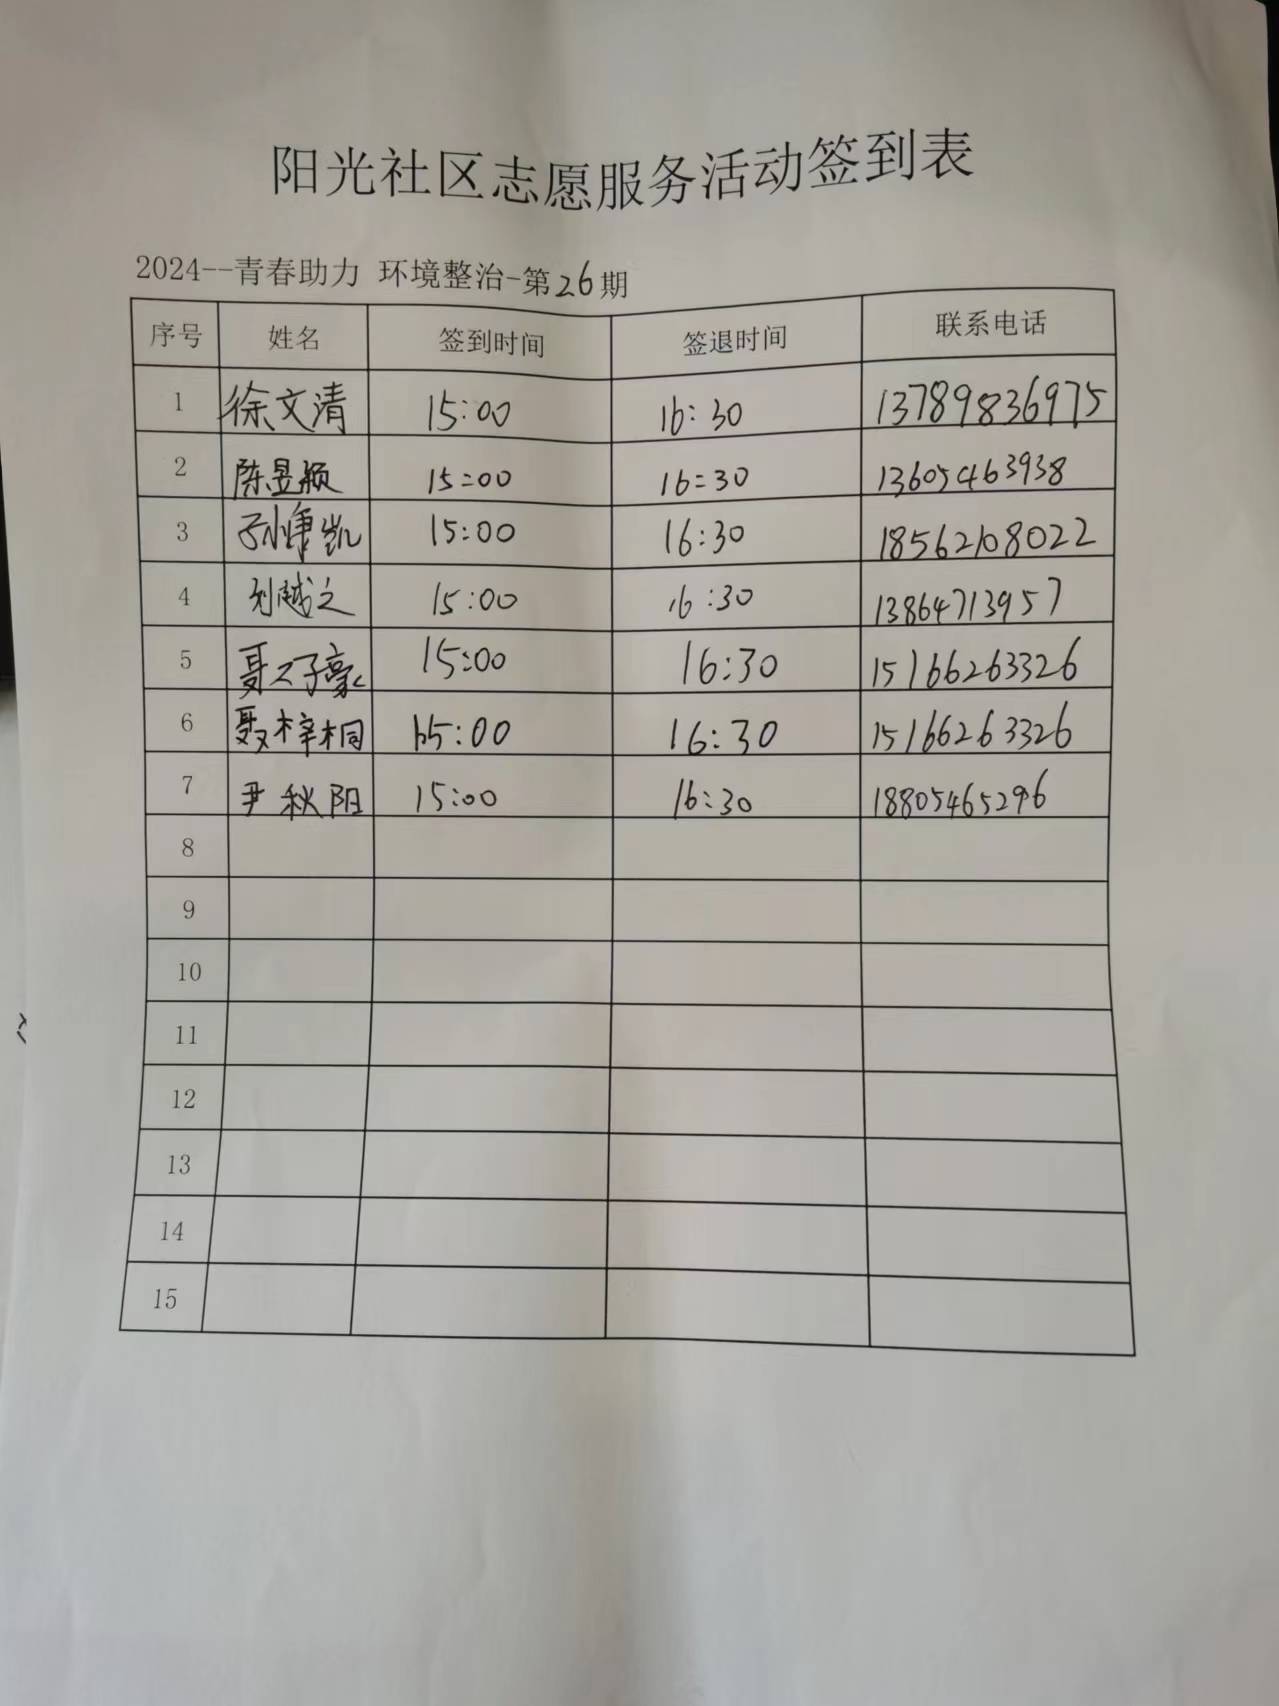 阳光社区志愿服务活动签到表
2024--青春助力 环境整治-第26期
序号 姓名 签到时间 签退时间 联系电话
1 徐文清 15:00 16:30 13789836975
2 陈昱颖 15:00 16:30 13605463938
3 孙凯 15:00 16:30 18562108022
4 刘越之 15:00 16:30 13864713957
5 聂子豪 15:00 16:30 15166263326
6 聂梓桐 15:00 16:30 15166263326
7 尹秋阳 15:00 16:30 18805465296
8
9
10
11
12
13
14
15